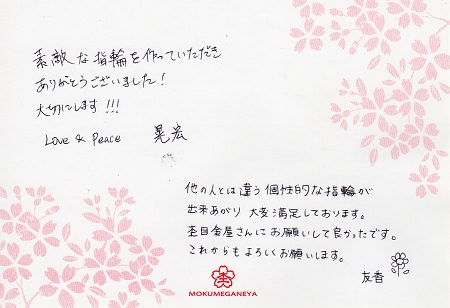 素敵な指輪を作っていただき
ありがとうございました!
大切にします!!!
Love & Peace 晃宏
他の人とは違う個性的な指輪が
出来あがり大変満足しております。
杢目金屋さんにお願いして良かったです。
これからもよろしくお願いします。
友香
MOKUMEGANEYA